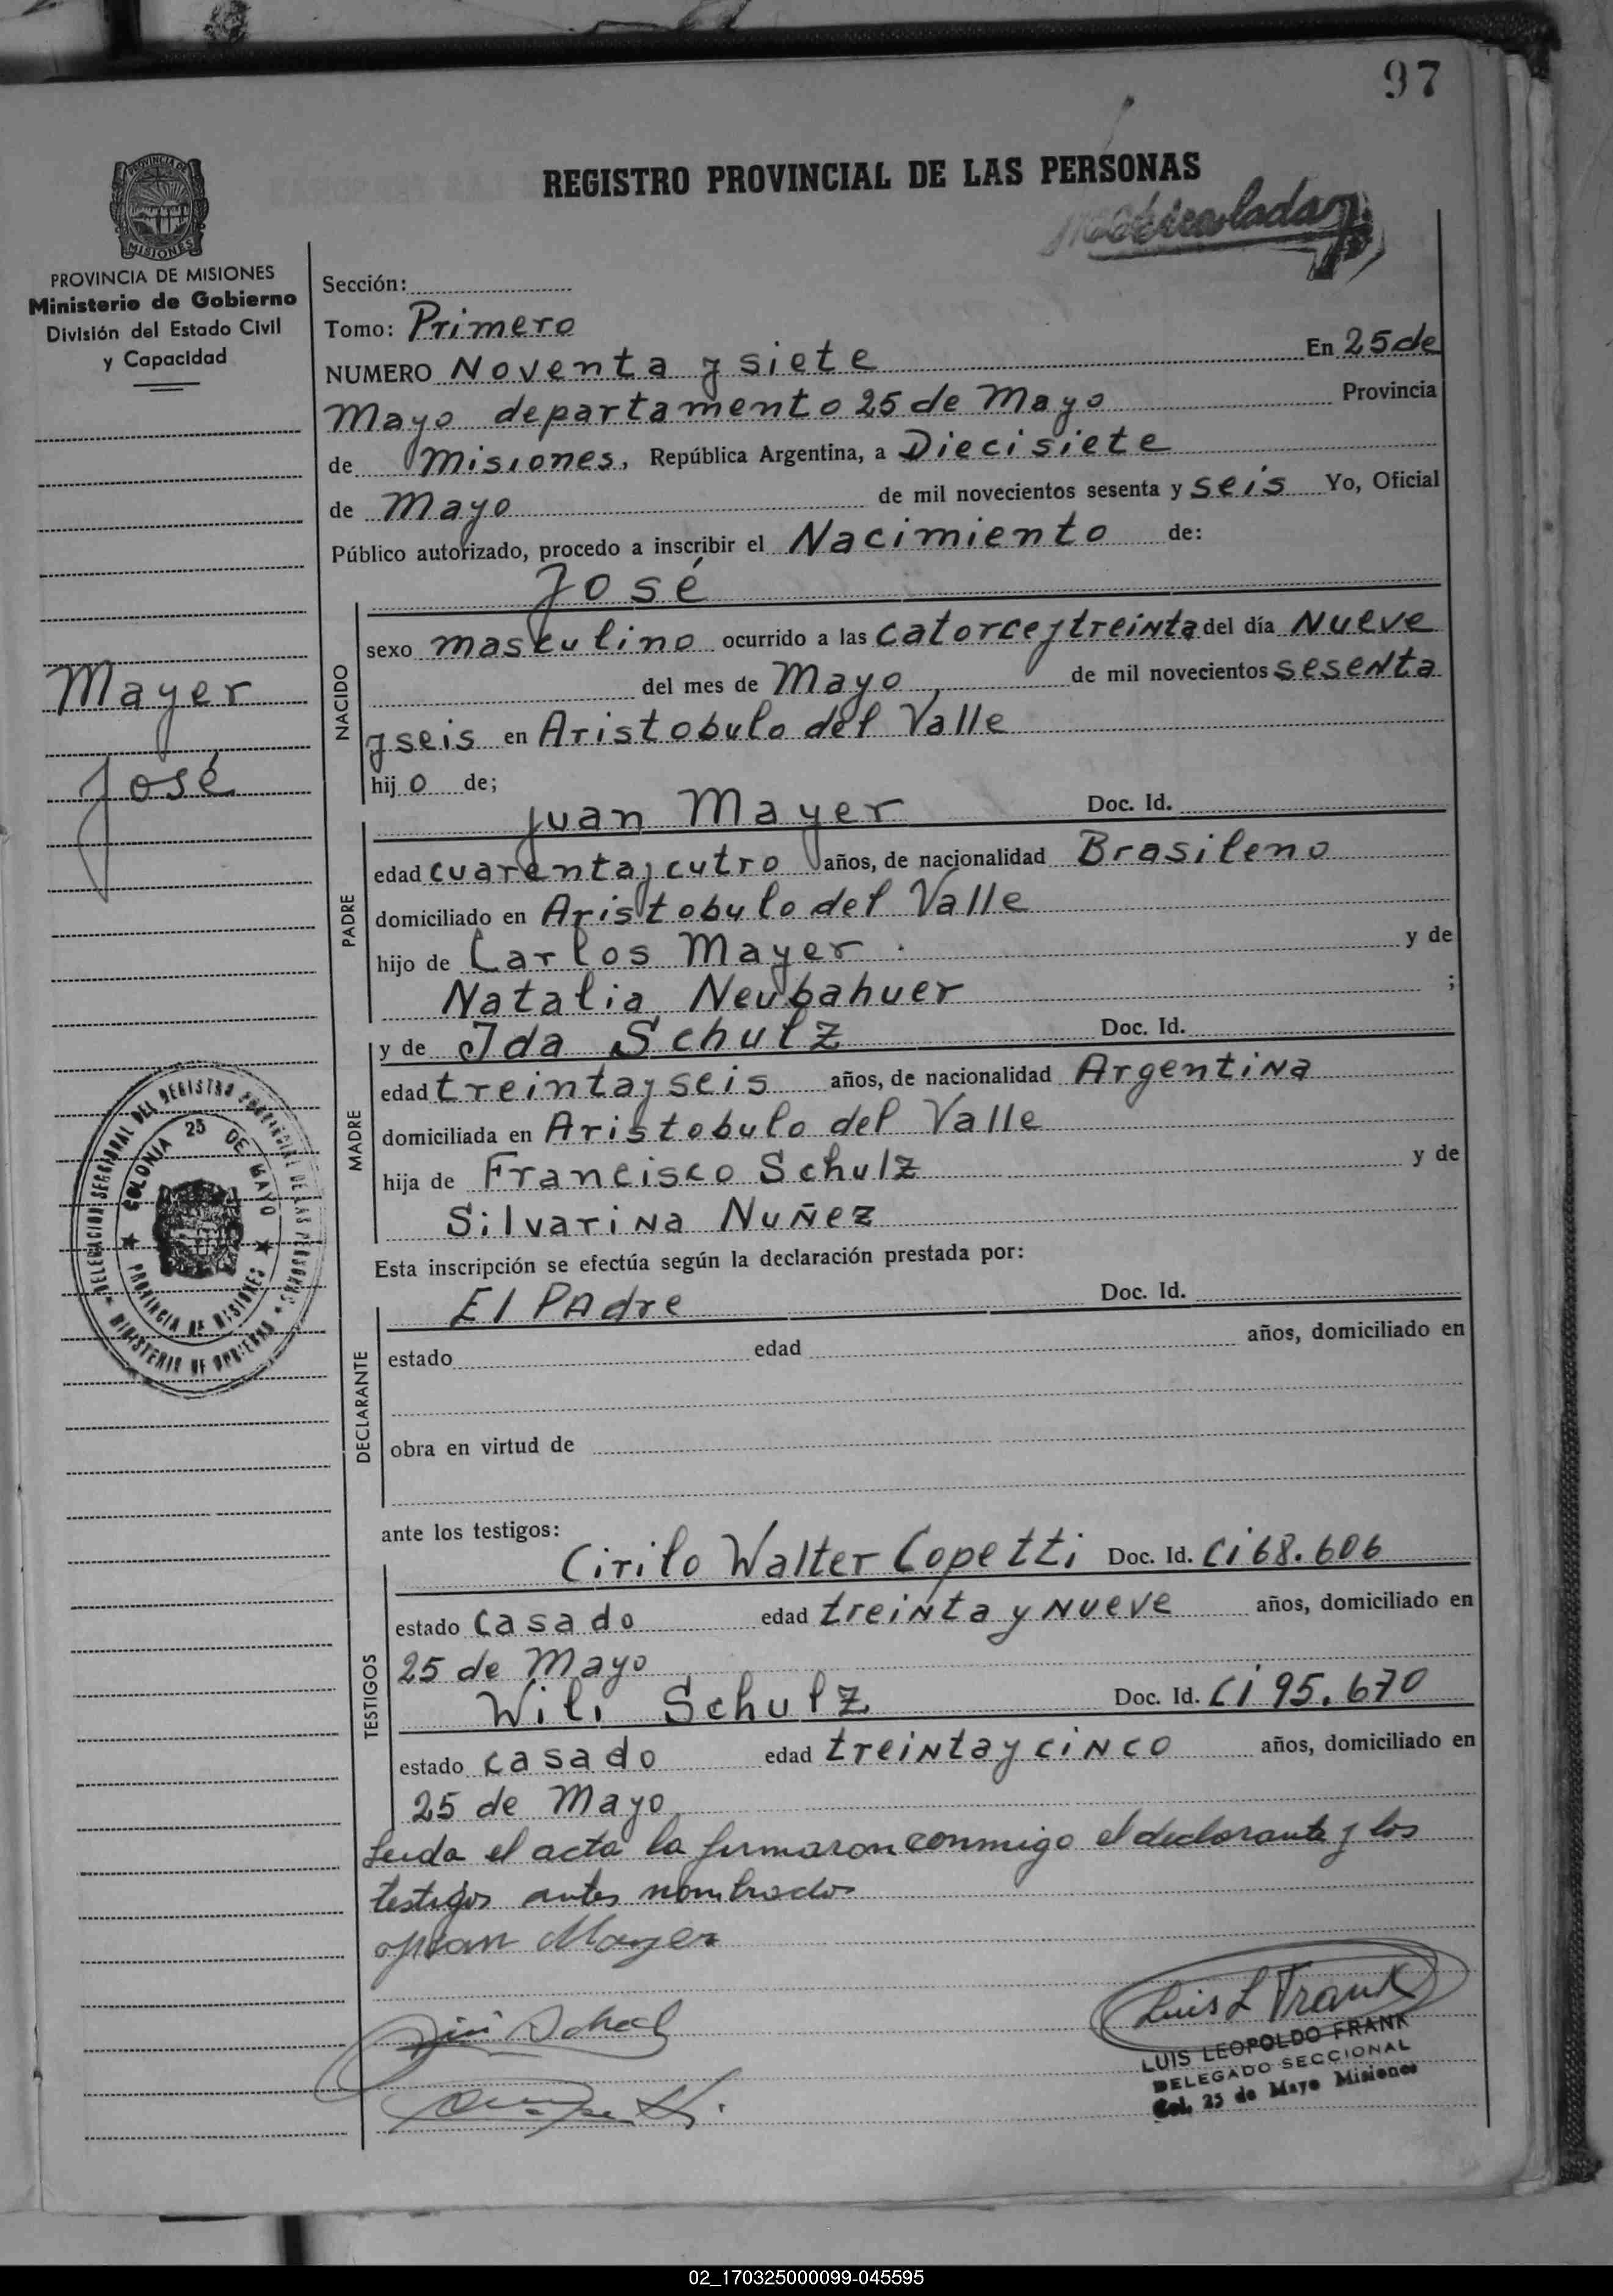 97
REGISTRO PROVINCIAL DE LAS PERSONAS
Matriculada
PROVINCIA DE MISIONES
PROVINCIA DE MISIONES
Ministerio de Gobierno
División del Estado Civil
y Capacidad
Sección:
Tomo: Primero
NUMERO Noventa y siete En 25 de
Mayo departamento 25 de Mayo Provincia
de Misiones, República Argentina, a Diecisiete
de Mayo de mil novecientos sesenta y seis Yo, Oficial
Público autorizado, procedo a inscribir el Nacimiento de:
Mayer
José
NACIDO
José
sexo masculino ocurrido a las catorce y treinta del día Nueve
del mes de Mayo de mil novecientos sesenta
y seis en Aristobulo del Valle
hijo de;
PADRE
Juan Mayer Doc. Id.
edad cuarenta y cutro años, de nacionalidad Brasileno
domiciliado en Aristobulo del Valle
hijo de Carlos Mayer y de
Natalia Neubahuer ;
MADRE
y de Ida Schulz Doc. Id.
edad treinta y seis años, de nacionalidad Argentina
domiciliada en Aristobulo del Valle
hija de Francisco Schulz y de
Silvarina Nuñez
DELEGACION SECCIONAL DEL REGISTRO PROVINCIAL DE LAS PERSONAS
MINISTERIO DE GOBIERNO
COLONIA 25 DE MAYO
PROVINCIA DE MISIONES
Esta inscripción se efectúa según la declaración prestada por:
DECLARANTE
El PAdre Doc. Id.
estado edad años, domiciliado en
obra en virtud de
ante los testigos:
TESTIGOS
Cirilo Walter Copetti Doc. Id. Ci 68.606
estado casado edad treinta y Nueve años, domiciliado en
25 de Mayo
Wili Schulz Doc. Id. Ci 95.670
estado casado edad treinta y cinco años, domiciliado en
25 de Mayo
Leida el acta la firmaron conmigo el declarante y los
testigos antes nombrados
Juan Mayer
Luis L Frank
LUIS LEOPOLDO FRANK
DELEGADO SECCIONAL
Col. 25 de Mayo Misiones
02_170325000099-045595